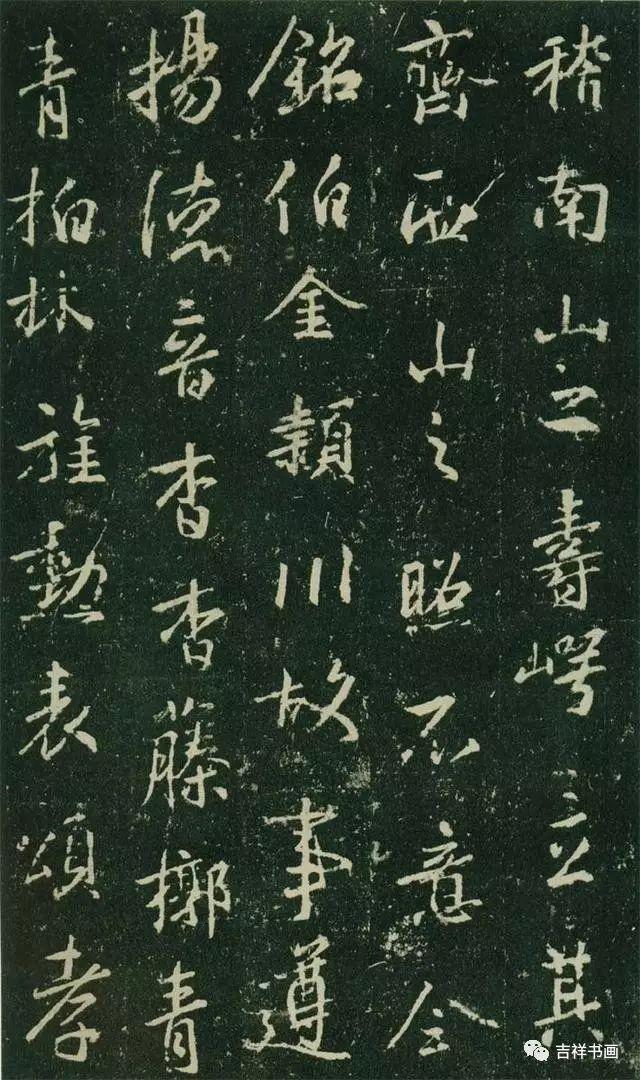 稽南山之壽崿立其
齊山之照不意令
銘伯金穎川故事遵
揚德音杳杳藤槨青
青柏林旌勳表頌孝
吉祥书画